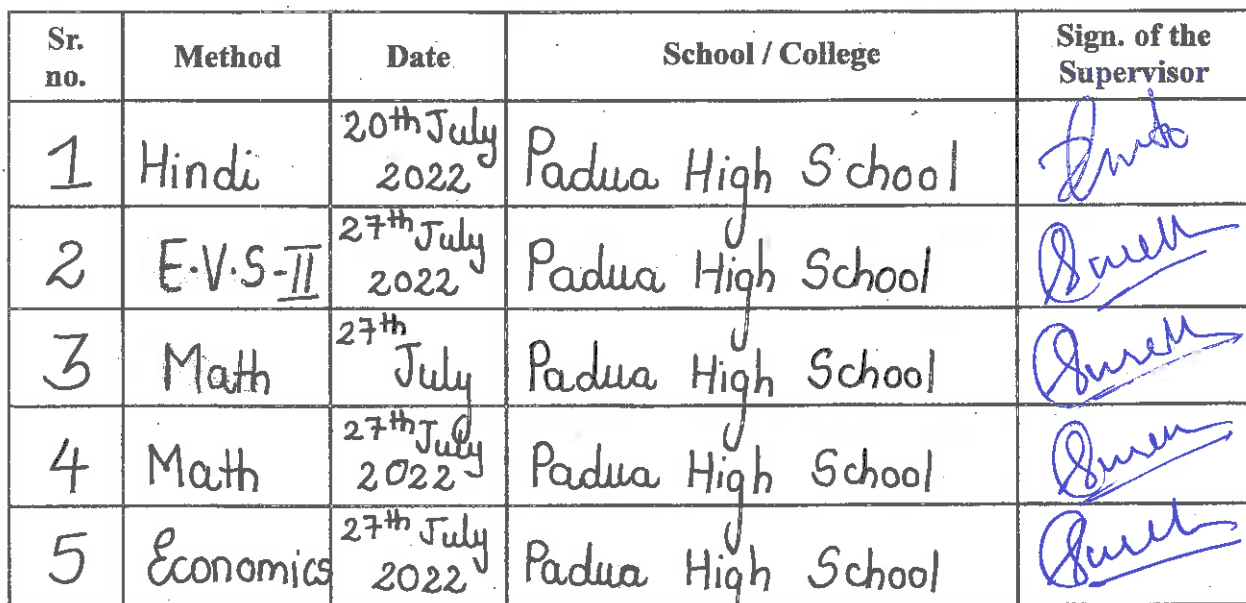 Sr. no. Method Date School / College Sign. of the Supervisor
1 Hindi 20th July 2022 Padua High School
2 E.V.S-II 27th July 2022 Padua High School
3 Math 27th July Padua High School
4 Math 27th July 2022 Padua High School
5 Economics 27th July 2022 Padua High School